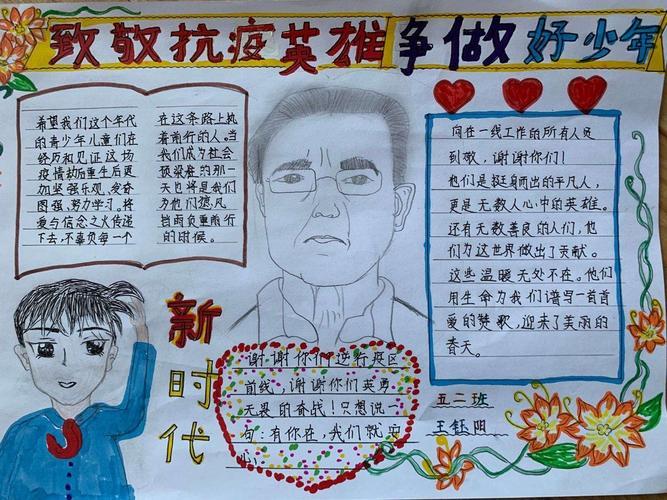 致敬抗疫英雄 争做好少年
希望我们这个年代
的青少年儿童们在
经历和见证这场
疫情劫后重生后更
加坚强乐观、发奋
图强、努力学习。将
爱与信念之火传递
下去,不辜负每一个
在这条路上执
着前行的人。当
我们成为社会
顶梁柱的那一
天也将是我们
为他们遮风
挡雨负重前行
的时候。
向在一线工作的所有人员
致敬,谢谢你们!
他们是挺身而出的平凡人,
更是无数人心中的英雄。
还有无数善良的人们,他
们为这世界做出了贡献。
这些温暖无处不在。他们
用生命为我们谱写一首首
爱的赞歌,迎来了美丽的
春天。
新时代
谢谢你们逆行疫区
前线,谢谢你们英勇
无畏的奋战!只想说
一句:有你在,我们就安
心。
五二班
王钰阳